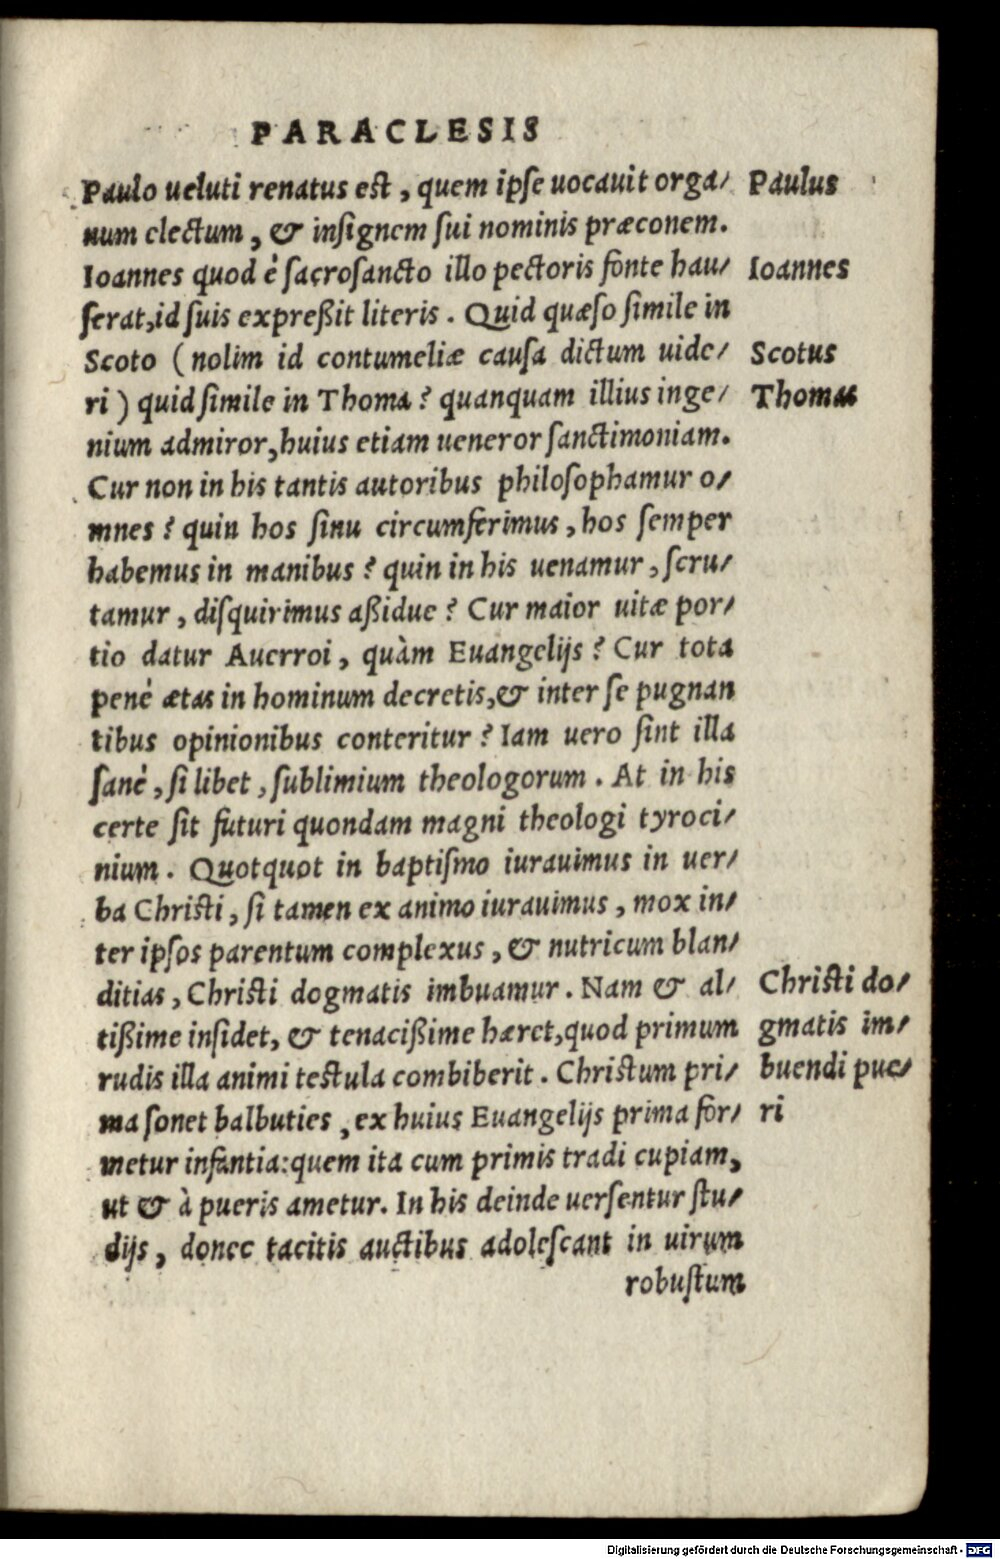 PARACLESIS
Paulo ueluti renatus est, quem ipse uocauit orga/
num electum, & insignem sui nominis præconem.
Ioannes quod è sacrosancto illo pectoris fonte hau/
serat, id suis expreßit literis. Quid quæso simile in
Scoto (nolim id contumeliæ causa dictum uide/
ri) quid simile in Thoma? quanquam illius inge/
nium admiror, huius etiam ueneror sanctimoniam.
Cur non in his tantis autoribus philosophamur o/
mnes? quin hos sinu circumferimus, hos semper
habemus in manibus? quin in his uenamur, scru/
tamur, disquirimus aßidue? Cur maior uitæ por/
tio datur Auerroi, quàm Euangelijs? Cur tota
penè ætas in hominum decretis, & inter se pugnan
tibus opinionibus conteritur? Iam uero sint illa
sanè, si libet, sublimium theologorum. At in his
certe sit futuri quondam magni theologi tyroci/
nium. Quotquot in baptismo iurauimus in uer/
ba Christi, si tamen ex animo iurauimus, mox in/
ter ipsos parentum complexus, & nutricum blan/
ditias, Christi dogmatis imbuamur. Nam & al/
tißime insidet, & tenacißime hæret, quod primum
rudis illa animi testula combiberit. Christum pri/
ma sonet balbuties, ex huius Euangelijs prima for/
metur infantia: quem ita cum primis tradi cupiam,
ut & à pueris ametur. In his deinde uersentur stu/
dijs, donec tacitis auctibus adolescant in uirum
robustum
Paulus
Ioannes
Scotus
Thomas
Christi do/
gmatis im/
buendi pue/
ri
Digitalisierung gefördert durch die Deutsche Forschungsgemeinschaft - DFG